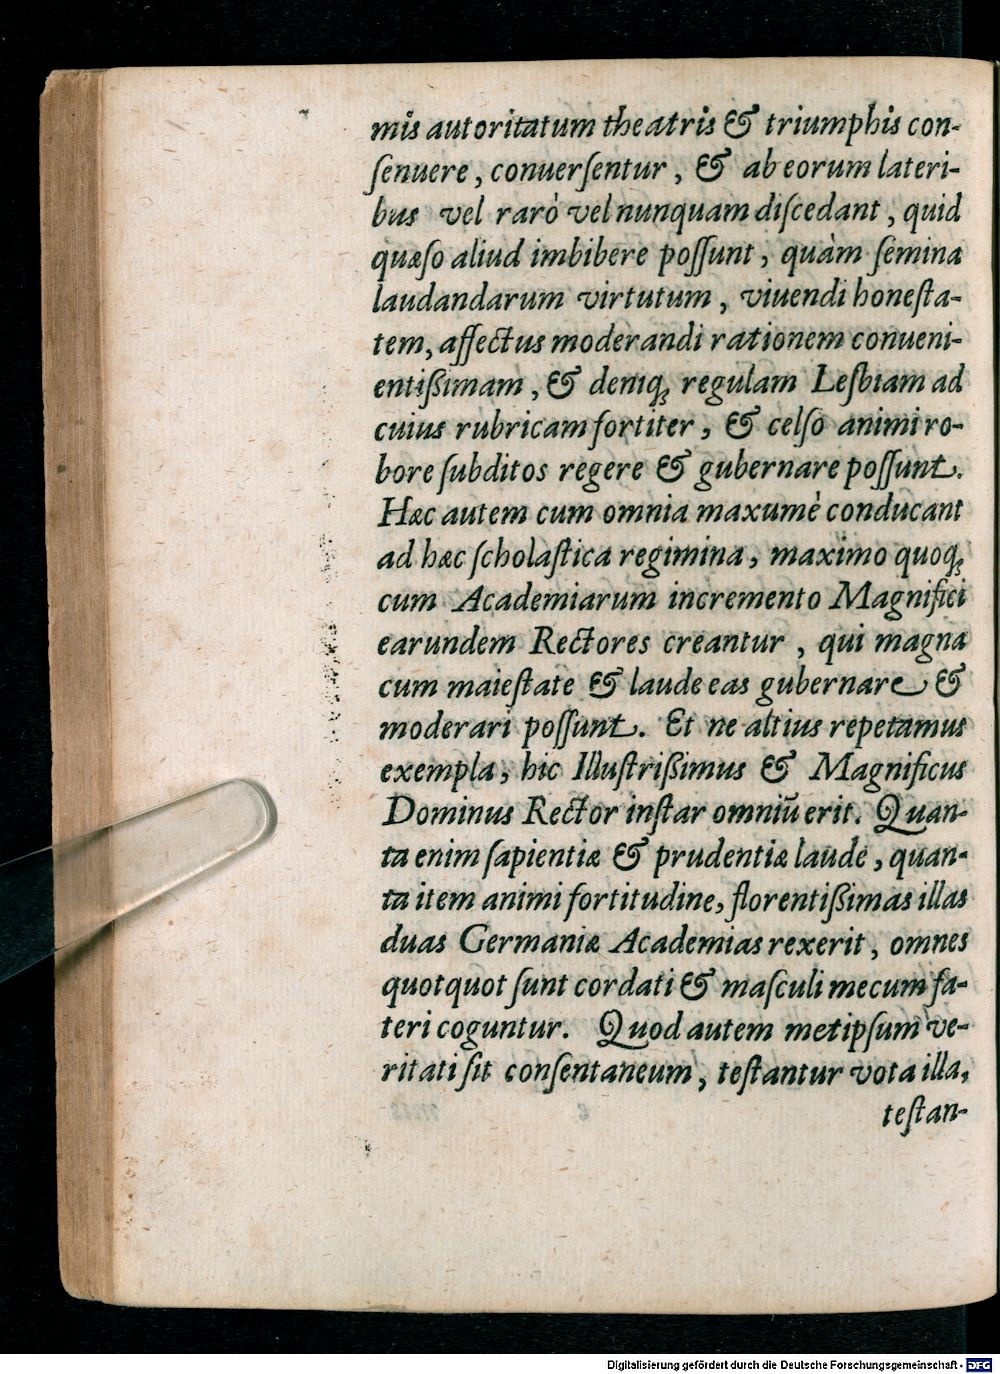 mis autoritatum theatris & triumphis con-
ſenuere, conuerſentur, & ab eorum lateri-
bus vel rarò vel nunquam diſcedant, quid
quæſo aliud imbibere poſſunt, quàm ſemina
laudandarum virtutum, viuendi honeſta-
tem, affectus moderandi rationem conueni-
entißimam, & deniq; regulam Lesbiam ad
cuius rubricam fortiter, & celſo animi ro-
bore ſubditos regere & gubernare poſſunt.
Hæc autem cum omnia maxumè conducant
ad hæc ſcholaſtica regimina, maximo quoq;
cum Academiarum incremento Magnifici
earundem Rectores creantur, qui magna
cum maieſtate & laude eas gubernare &
moderari poſſunt. Et ne altius repetamus
exempla, hic Illuſtrißimus & Magnificus
Dominus Rector inſtar omniũ erit. Quan-
ta enim ſapientiæ & prudentiæ laude, quan-
ta item animi fortitudine, florentißimas illas
duas Germaniæ Academias rexerit, omnes
quotquot ſunt cordati & maſculi mecum fa-
teri coguntur. Quod autem metipſum ve-
ritati ſit conſentaneum, teſtantur vota illa,
teſtan-
Digitalisierung gefördert durch die Deutsche Forschungsgemeinschaft - DFG